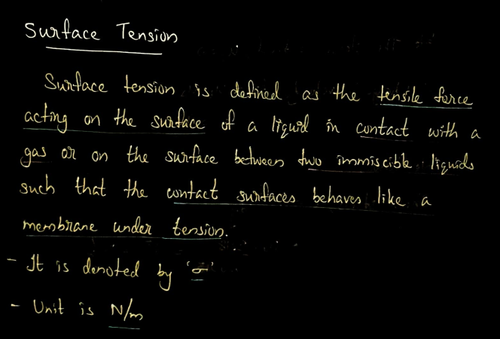 Surface Tension
Surface tension is defined as the tensile force
acting on the surface of a liquid in contact with a
gas or on the surface between two immiscible liquids
such that the contact surfaces behaves like a
membrane under tension.
- It is denoted by 'σ'
- Unit is N/m